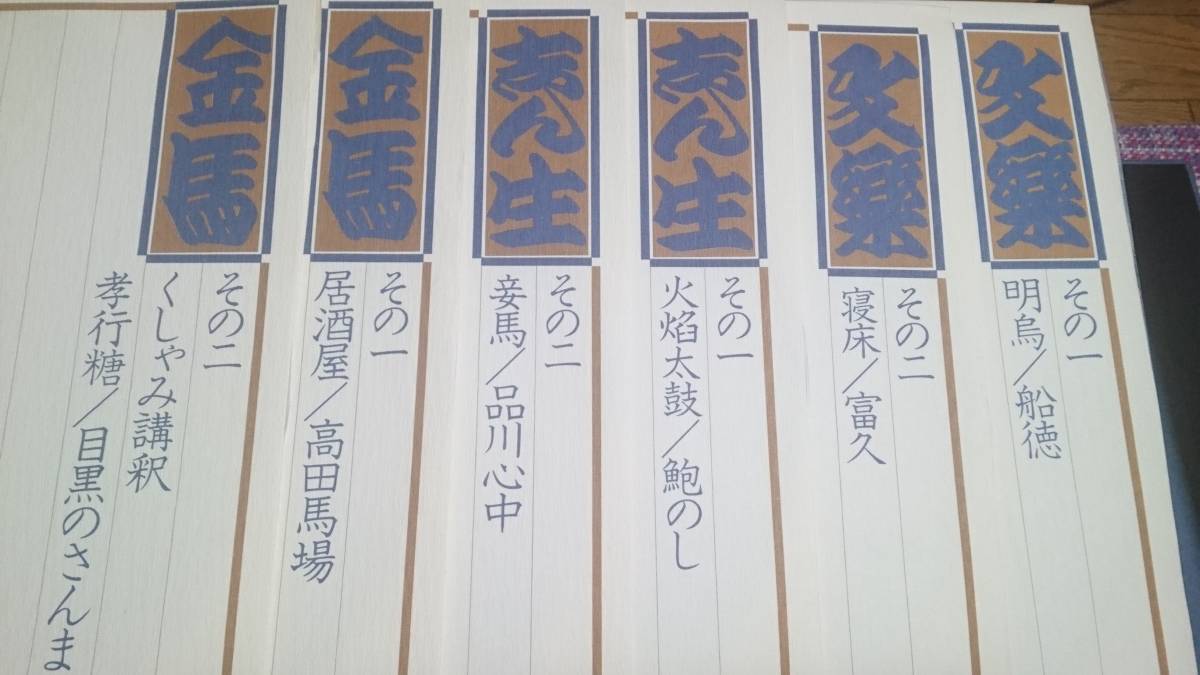 文樂
その一
明烏／船徳
文樂
その二
寝床／富久
志ん生
その一
火焰太鼓／鮑のし
志ん生
その二
妾馬／品川心中
金馬
その一
居酒屋／高田馬場
金馬
その二
くしゃみ講釈
孝行糖／目黒のさんま